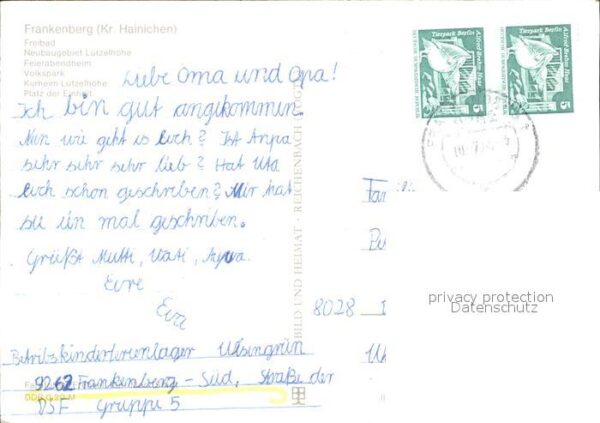 Frankenberg (Kr. Hainichen)
Freibad
Neubaugebiet Lützelhöhe
Feierabendheim
Volkspark
Kurheim Lützelhöhe
Platz der Einheit
Liebe Oma und Opa!
Ich bin gut angekommen.
Nun wie geht es Euch? Ist Anpa
sehr sehr sehr lieb? Hat Uta
Euch schon geschrieben? Mir hat
sie ein mal geschrieben.
Grüßt Mutti, Vati,
Eure
8028
Betriebskinderferienlager
9262 Frankenberg - Süd, Straße der
DSF Gruppe 5
BILD UND HEIMAT · REICHENBACH
Tierpark Berlin
Alfred-Brehm-Haus
5
Tierpark Berlin
Alfred-Brehm-Haus
5
privacy protection
Datenschutz